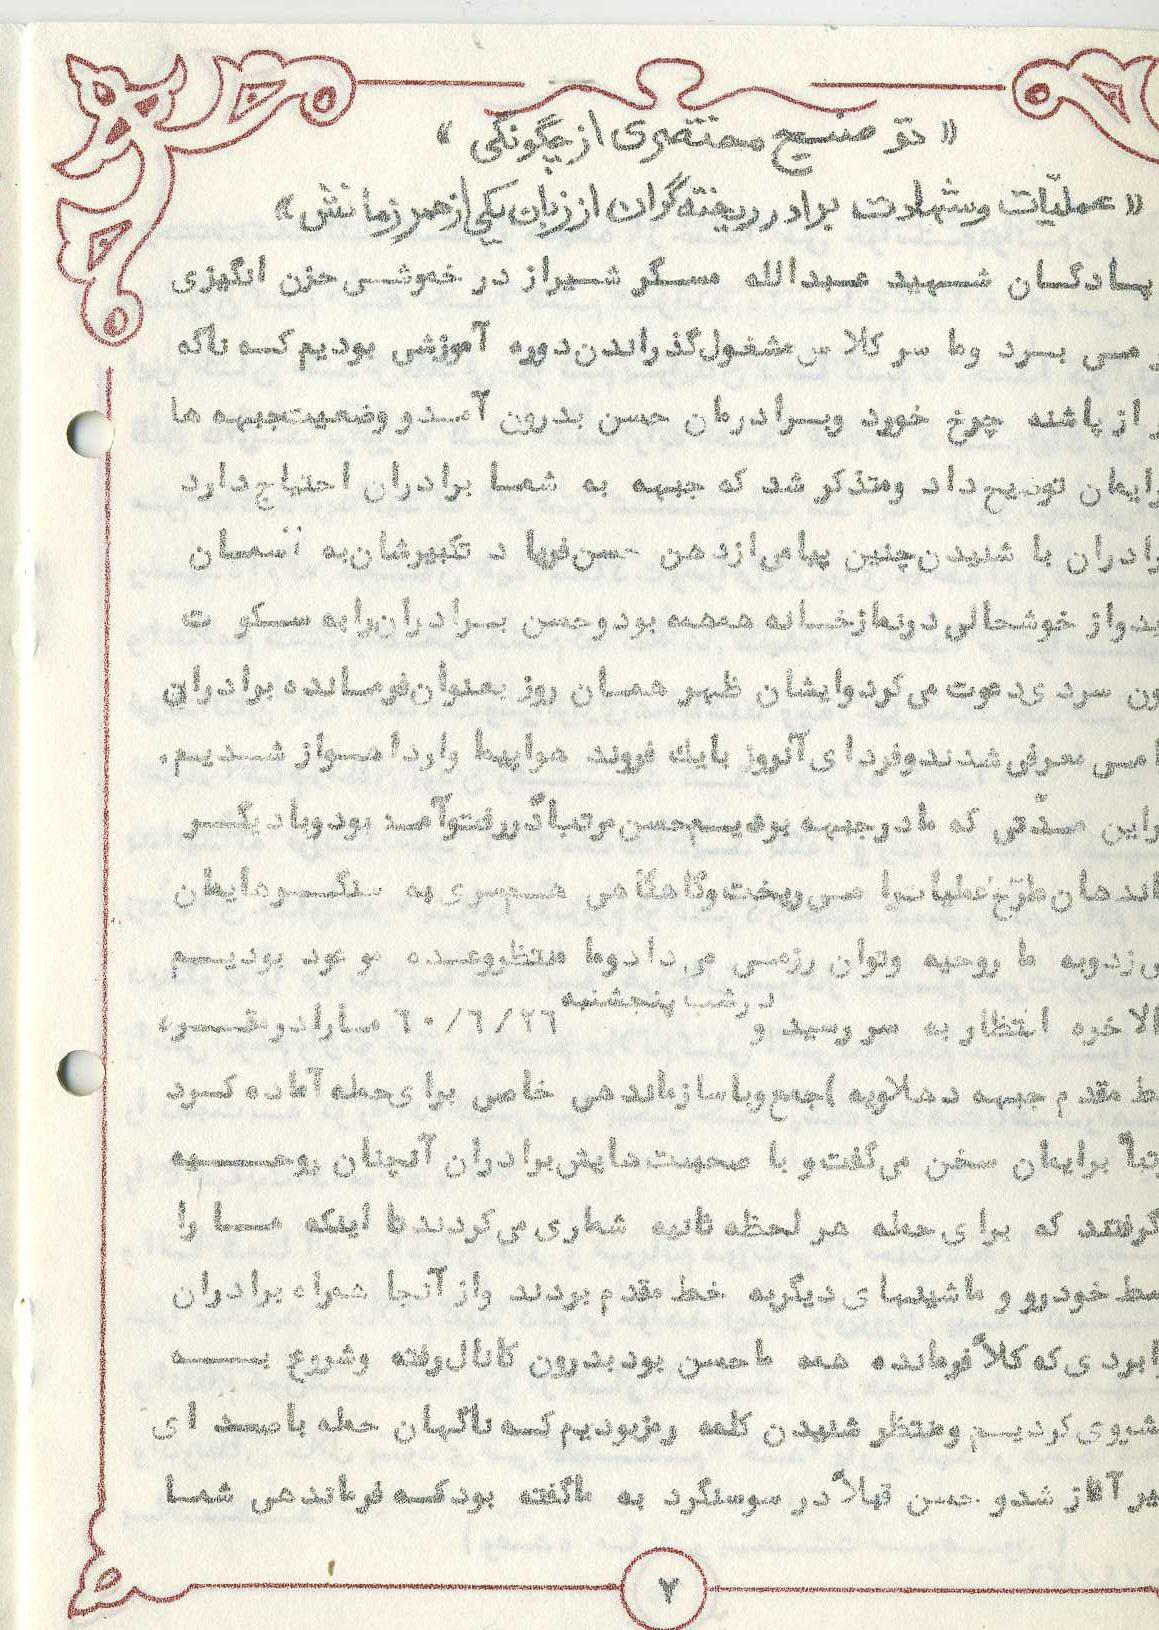 « توضیح مختصری از چگونگی »
« عملیّات و شهادت برادر ریخته‌گران از زبان یکی از همرزمانش »
پادگان شهید عبدالله مسگر شیراز در خموشی حزن انگیزی
می برد وما سر کلاس مشغول گذراندن دوره آموزشی بودیم که ناگه
از پاشنه چرخ خورد وبرادرمان حسن بدرون آمد و وضعیت جبهه ها
رایمان توضیح داد ومتذکر شد که جبهه به شما برادران احتیاج دارد
رادران با شنیدن چنین پیامی از دهن حسن فریاد تکبیرشان به آسمان
ید و از خوشحالی در نمازخانه همهمه بود و حسن برادران را به سکوت
ون سردی دعوت می کرد و ایشان ظهر همان روز بعنوان فرمانده برادران
امی معرفی شدند و فردای آنروز با یک فروند هواپیما وارد اهواز شدیم.
راین مدّتی که ما در جبهه بودیم حسن مرتباً در رفت و آمد بود و با دیگر
اندهان طرح عملیات را می ریخت و گاهگاهی هم سری به سنگرهایمان
ی زد و به ما روحیه وتوان رزمی می داد و ما منتظر وعده موعود بودیم
الاخره انتظار به سر رسید و در شب پنجشنبه ۶۰/۶/۲۶ مارا در مقر،
ط مقدم جبهه دهلاویه جمع و با سازماندهی خاصی برای حمله آماده کرد
تباً برایمان سخن می گفت و با صحبت هایش برادران آنچنان روحیه
گرفتند که برای حمله هر لحظه ثانیه شماری می کردند تا اینکه ما را
سط خودرو و ماشینهای دیگر به خط مقدم بودند و از آنجا همراه برادران
ابردی که کلاً فرمانده همه ما حسن بود بدرون کانال رفته وشروع به
شروی کردیم و منتظر شنیدن کلمه رمز بودیم که ناگهان حمله با صدای
یر آغاز شد و حسن قبلاً در سوسنگرد به ما گفته بود که فرماندهی شما
۷